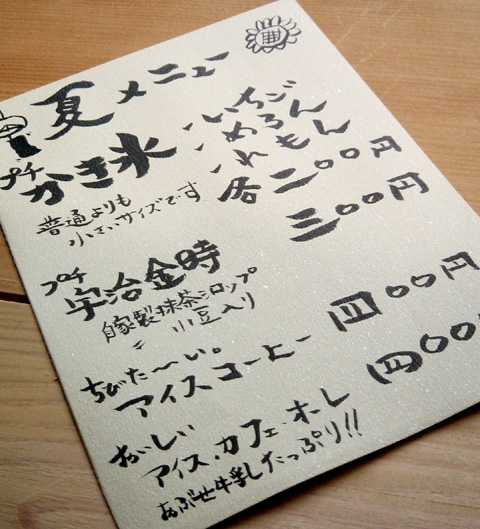 夏メニュー
プチ かき氷
・いちご
・めろん
・れもん
各二〇〇円
普通よりも
小さいサイズです
三〇〇円
プチ
宇治金時
自家製抹茶シロップ
〃 小豆入り
ちびた〜い。
アイスコーヒー 四〇〇円
おいしい
アイス・カフェ・オ・レ 四〇〇
あぶせ牛乳したっぷり!!